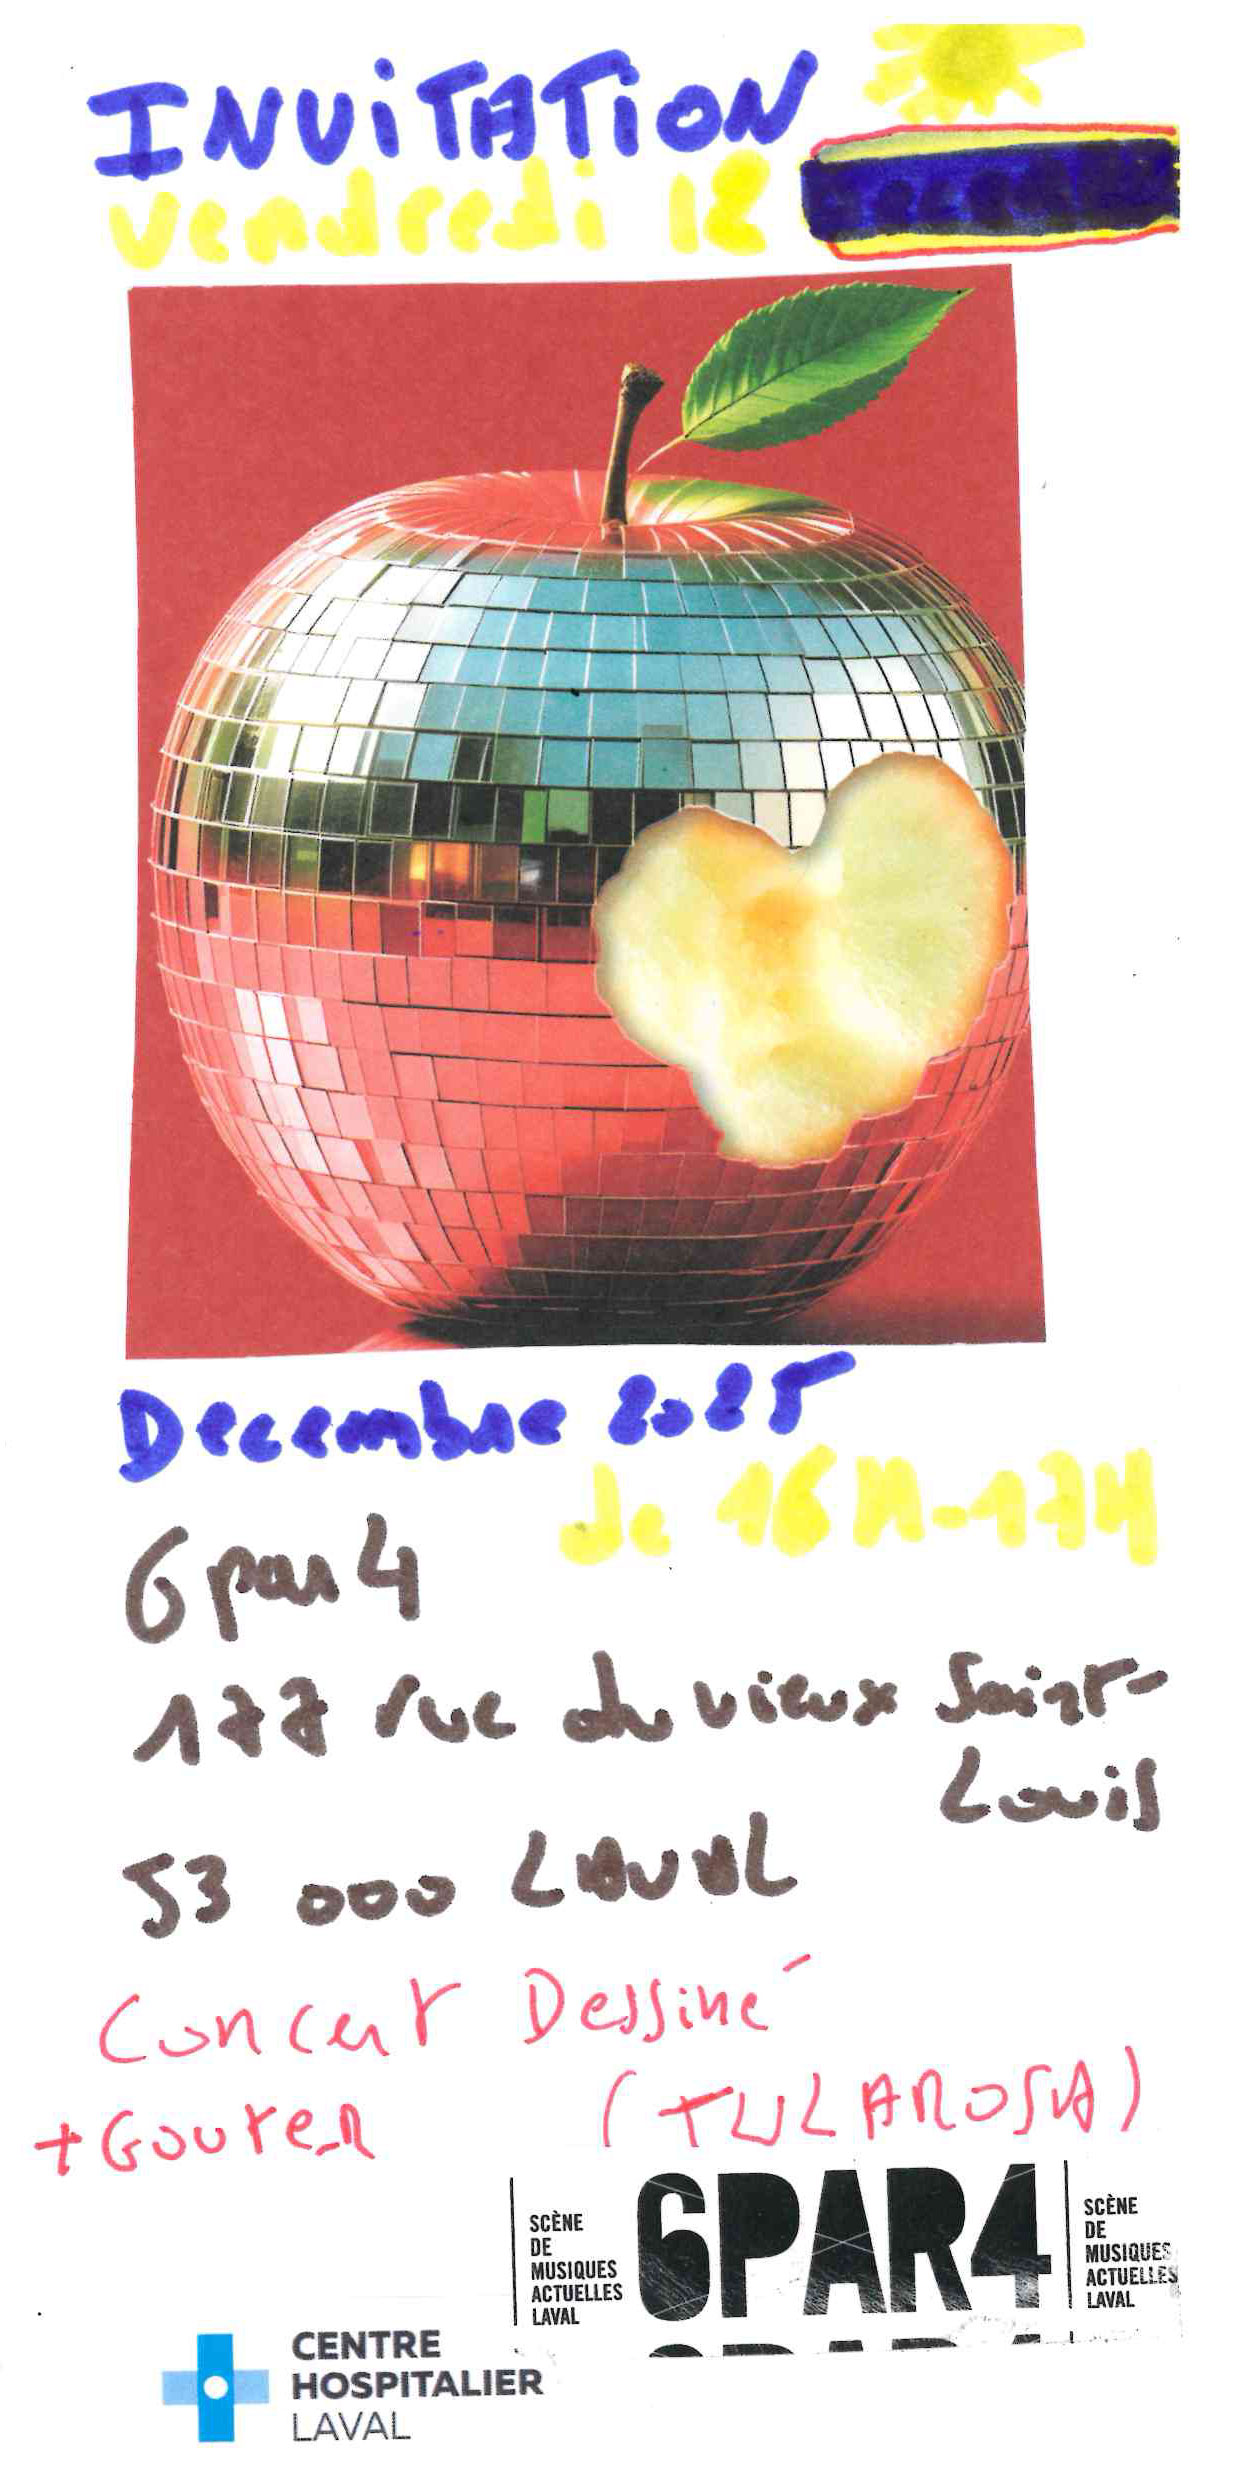 INVITATION
vendredi 12
Decembre 2025
de 16H-17H
6par4
177 rue du vieux Saint-
Louis
53 000 LAVAL
Concert Dessiné
+Gouter (TULAROSA)
SCÈNE
DE
MUSIQUES
ACTUELLES
LAVAL
6PAR4
SCÈNE
DE
MUSIQUES
ACTUELLES
LAVAL
CENTRE
HOSPITALIER
LAVAL